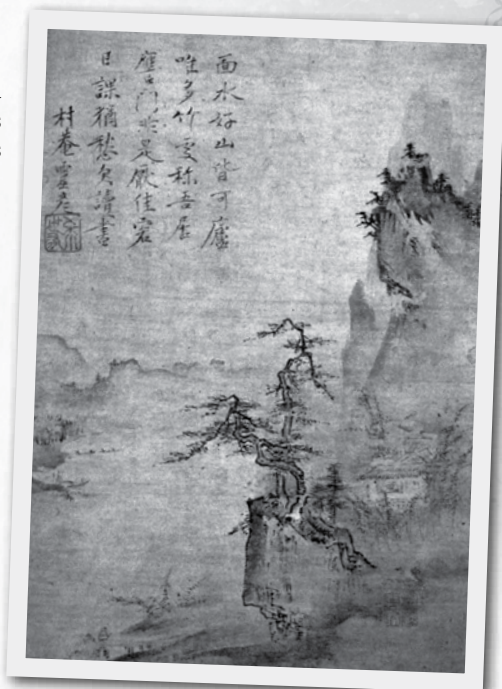 面水好山皆可廬
唯多竹處稱吾居
應門於是厭佳客
日課猶愁欠讀書
村菴靈彦